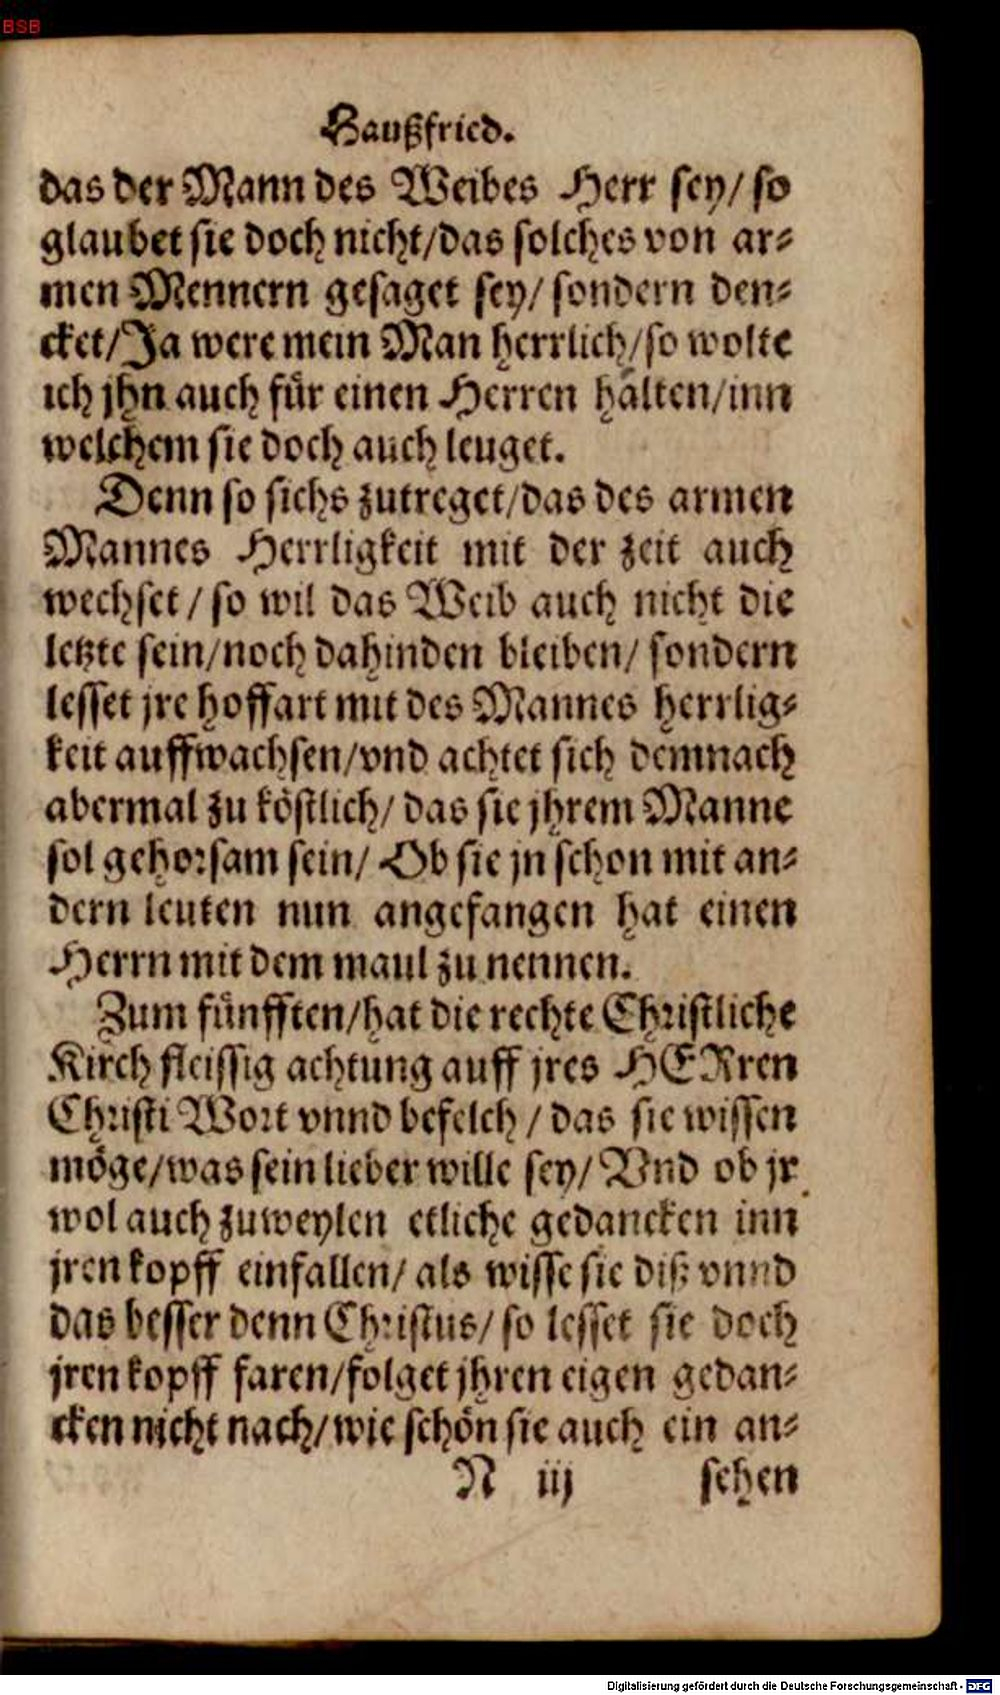 BSB
Haußfried.
das der Mann des Weibes Herr sey/ so
glaubet sie doch nicht/das solches von ar-
men Mennern gesaget sey/ sondern den-
cket/Ja were mein Man herrlich/so wolte
ich jhn auch für einen Herren halten/inn
welchem sie doch auch leuget.
Denn so sichs zutreget/das des armen
Mannes Herrligkeit mit der zeit auch
wechset / so wil das Weib auch nicht die
letzte sein/noch dahinden bleiben/ sondern
lesset jre hoffart mit des Mannes herrlig-
keit auffwachsen/vnd achtet sich demnach
abermal zu köstlich/ das sie jhrem Manne
sol gehorsam sein/ Ob sie jn schon mit an-
dern leuten nun angefangen hat einen
Herrn mit dem maul zu nennen.
Zum fünfften/hat die rechte Christliche
Kirch fleissig achtung auff jres HERren
Christi Wort vnnd befelch / das sie wissen
möge/was sein lieber wille sey/ Vnd ob jr
wol auch zuweylen etliche gedancken inn
jren kopff einfallen/ als wisse sie diß vnnd
das besser denn Christus/ so lesset sie doch
jren kopff faren/folget jhren eigen gedan-
cken nicht nach/wie schön sie auch ein an-
N iij sehen
Digitalisierung gefördert durch die Deutsche Forschungsgemeinschaft - DFG